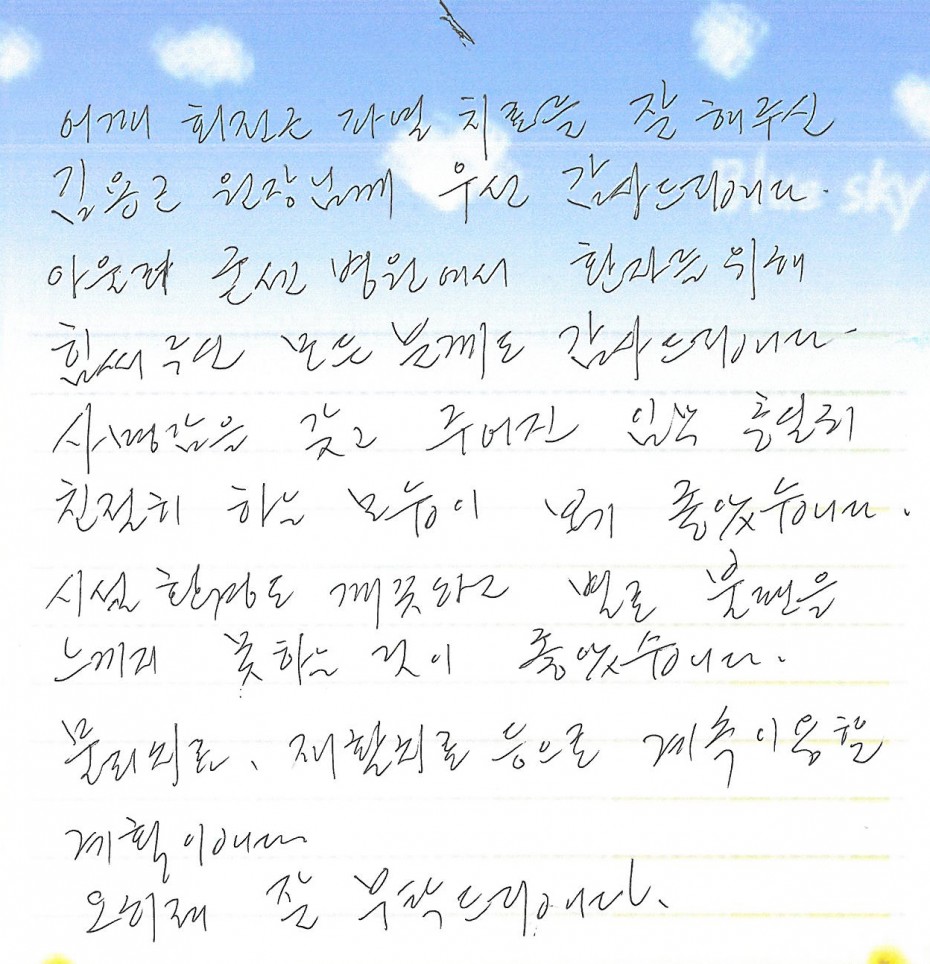 어깨 회전근 파열 치료를 잘 해주신
Blue sky
김용근 원장님께 우선 감사드립니다.
아울러 굳센 병원에서 환자를 위해
힘써 주신 모든 분께도 감사드립니다.
사명감을 갖고 주어진 임무 충실히
친절히 하는 모습이 보기 좋았습니다.
시설 환경도 깨끗하고 별로 불편을
느끼지 못하는 것이 좋았습니다.
물리치료, 재활치료 등으로 계속 이용할
계획입니다
잘 부탁드립니다.